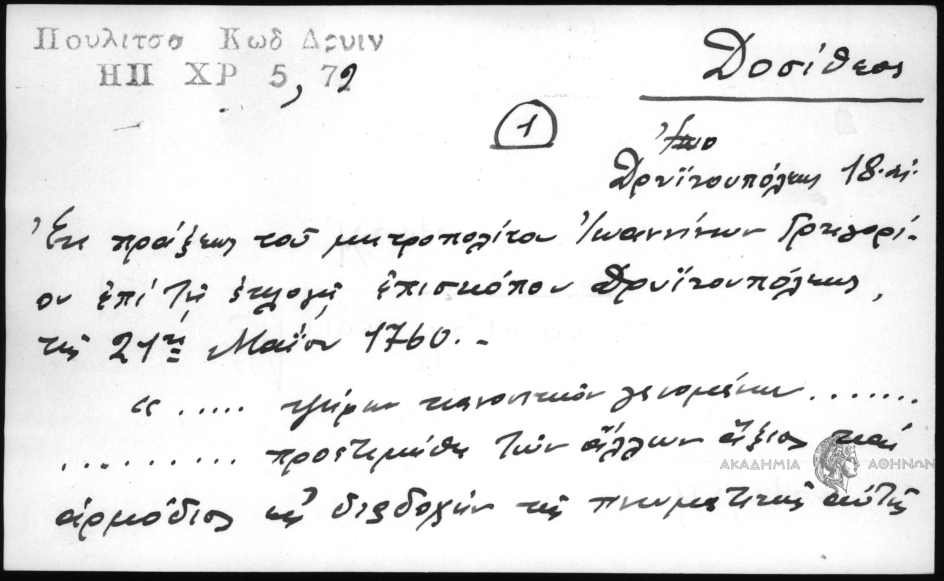 Πουλιτσα Κωδ Δρυιν
ΗΠ ΧΡ 5, 72
Δοσίθεος
1
Δρυϊνουπόλεως 18. αἰ.
Ἐκ πράξεως τοῦ μητροπολίτου Ἰωαννίνων Γρηγορί-
ου ἐπί τῇ ἐκλογῇ ἐπισκόπου Δρυϊνουπόλεως,
τῆς 21ης Μαΐου 1760.-
« ..... ψήφων κανονικῶν γενομένων .......
.......... προετιμήθη τῶν ἄλλων ἄξιος καί
ἁρμόδιος εἰς διαδοχήν τῆς πνευματικῆς αὐτῆς
ΑΚΑΔΗΜΙΑ ΑΘΗΝΩΝ